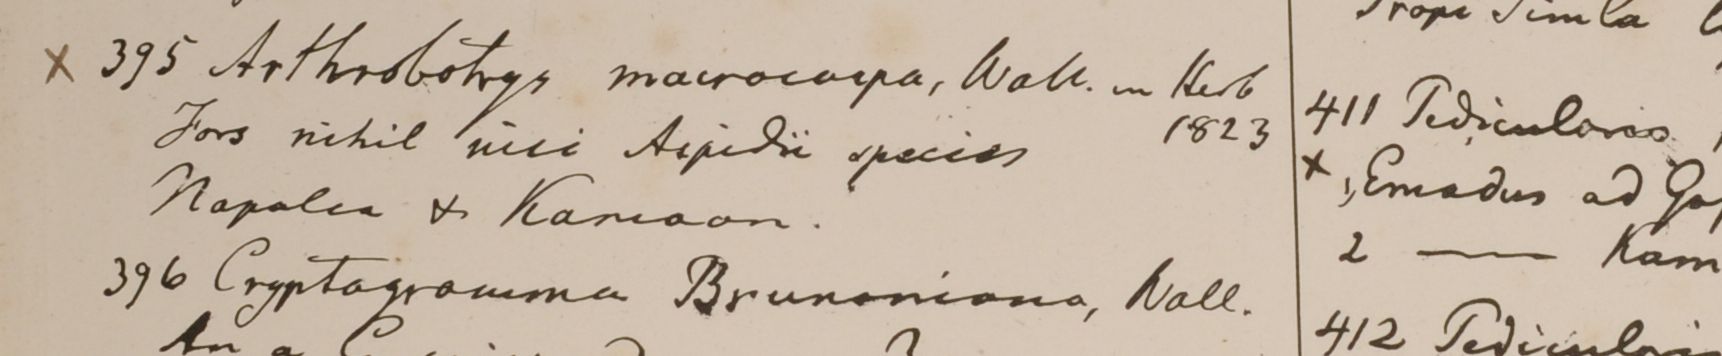 × 395 Arthrobotrys macrocarpa, Wall. in Herb
1823
Fors nihil nisi Aspidii species
Napalia & Kamaon.
396 Cryptogramma Brunoniana, Wall.
An a
Prope Simla
411 Pedicularis
× 1, Emodus ad Go
2 —— Kam
412 Pedicularis